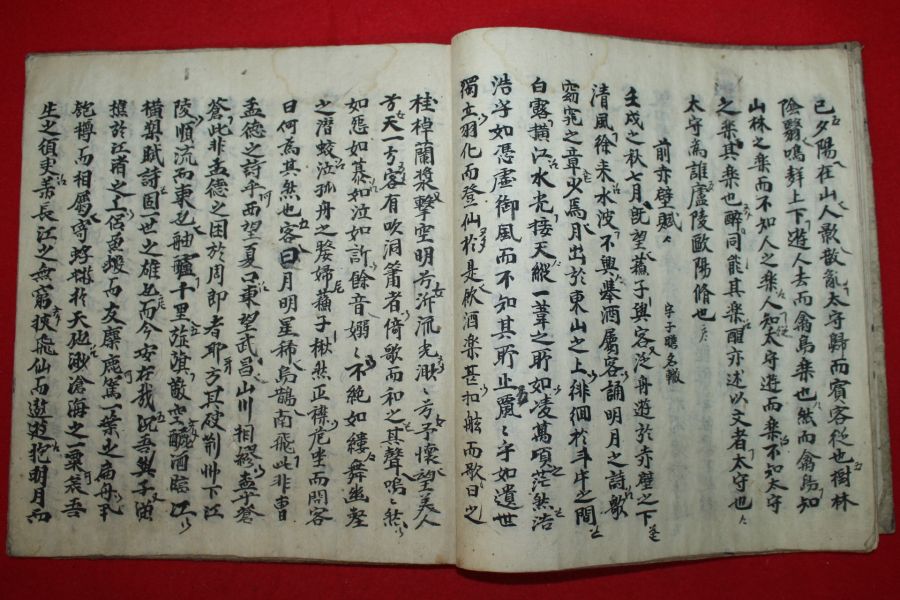 已夕陽在山人影散亂太守歸而賓客從也樹林
陰翳鳴聲上下遊人去而禽鳥樂也然而禽鳥知
山林之樂而不知人之樂人知太守遊而樂不知太守
之樂其樂也醉同能其樂醒亦述以文者太守也
太守爲誰盧陵歐陽脩也
前赤壁賦 字子瞻名轍
壬戌之秋七月旣望蘓子與客泛舟遊於赤壁之下
清風徐来水波不興擧酒屬客誦明月之詩歌
窈窕之章少焉月出於東山之上徘徊於斗牛之間
白露横江水光接天縱一葦之所如凌萬頃茫然浩
浩乎如憑虛御風而不知其所止飄〻乎如遺世
獨立羽化而登仙於是飮酒樂甚扣舷而歌曰之
桂棹蘭槳擊空明兮泝流光渺〻兮予懷望美人
兮天一方客有吹洞簫者倚歌而和之其聲嗚然
如怨如慕如泣如訴餘音嫋〻不絶如縷舞幽壑
之潛蛟泣孤舟之嫠婦蘓子愀然正襟危坐而問客
曰何爲其然也客曰月明星稀烏鵲南飛此非曺
孟德之詩乎西望夏口東望武昌山川相繆孟乎蒼
蒼此非孟德之困於周郎者耶方其破荆州下江
陵順流而東也舳艫千里旌旗蔽空釃酒臨江
横槊賦詩固一世之雄也而今安在哉况吾與子漁
樵於江渚之上侣魚蝦而友麋鹿駕一葉之扁舟
匏樽而相屬寄蜉蝣於天地渺滄海之一粟哀吾
生之須臾羡長江之無窮挾飛仙而遨遊抱明月而